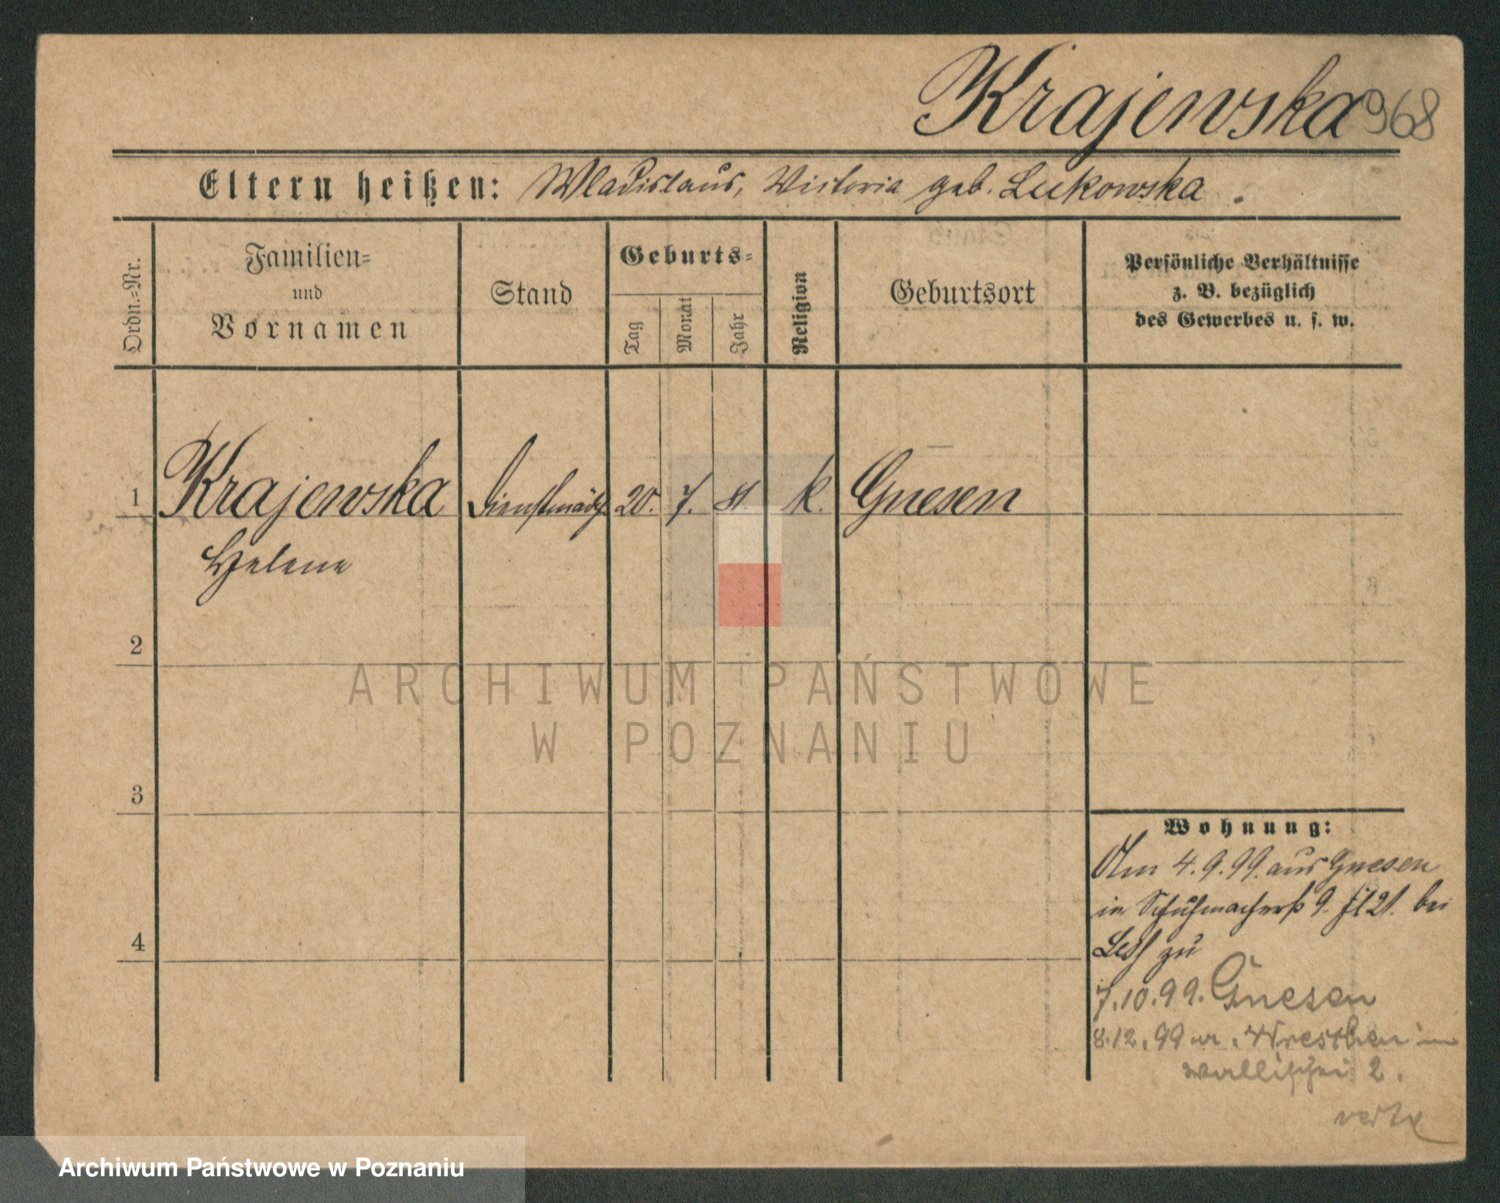 Krajewska 968
Eltern heißen: Wladislaus, Victoria geb. Lukowska.
Ordn.-Nr.
Familien-
und
Vornamen
Stand
Geburts-
Tag
Monat
Jahr
Religion
Geburtsort
Persönliche Verhältnisse
z. B. bezüglich
des Gewerbes u. s. w.
1 Krajewska Dienstmädch. 20. 7. 81. k. Gnesen
Helene
2
3
4
ARCHIWUM PAŃSTWOWE
W POZNANIU
Wohnung:
Am 4.9.99. aus Gnesen
in Schuhmacherst. 9. bei
zu
7.10.99. Gnesen
8.12.99 Wreschen in
Wallischei 2.
verte
Archiwum Państwowe w Poznaniu